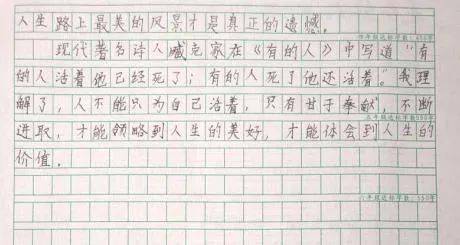 人生路上最美的风景才是真正的遗憾。
五年级达标字数:450字
现代著名诗人臧克家在《有的人》中写道“有
的人活着他已经死了；有的人死了他还活着。”我理
解了，人不能只为自己活着，只有甘于奉献，不断
进取，才能领略到人生的美好，才能体会到人生的
价值。
六年级达标字数:550字